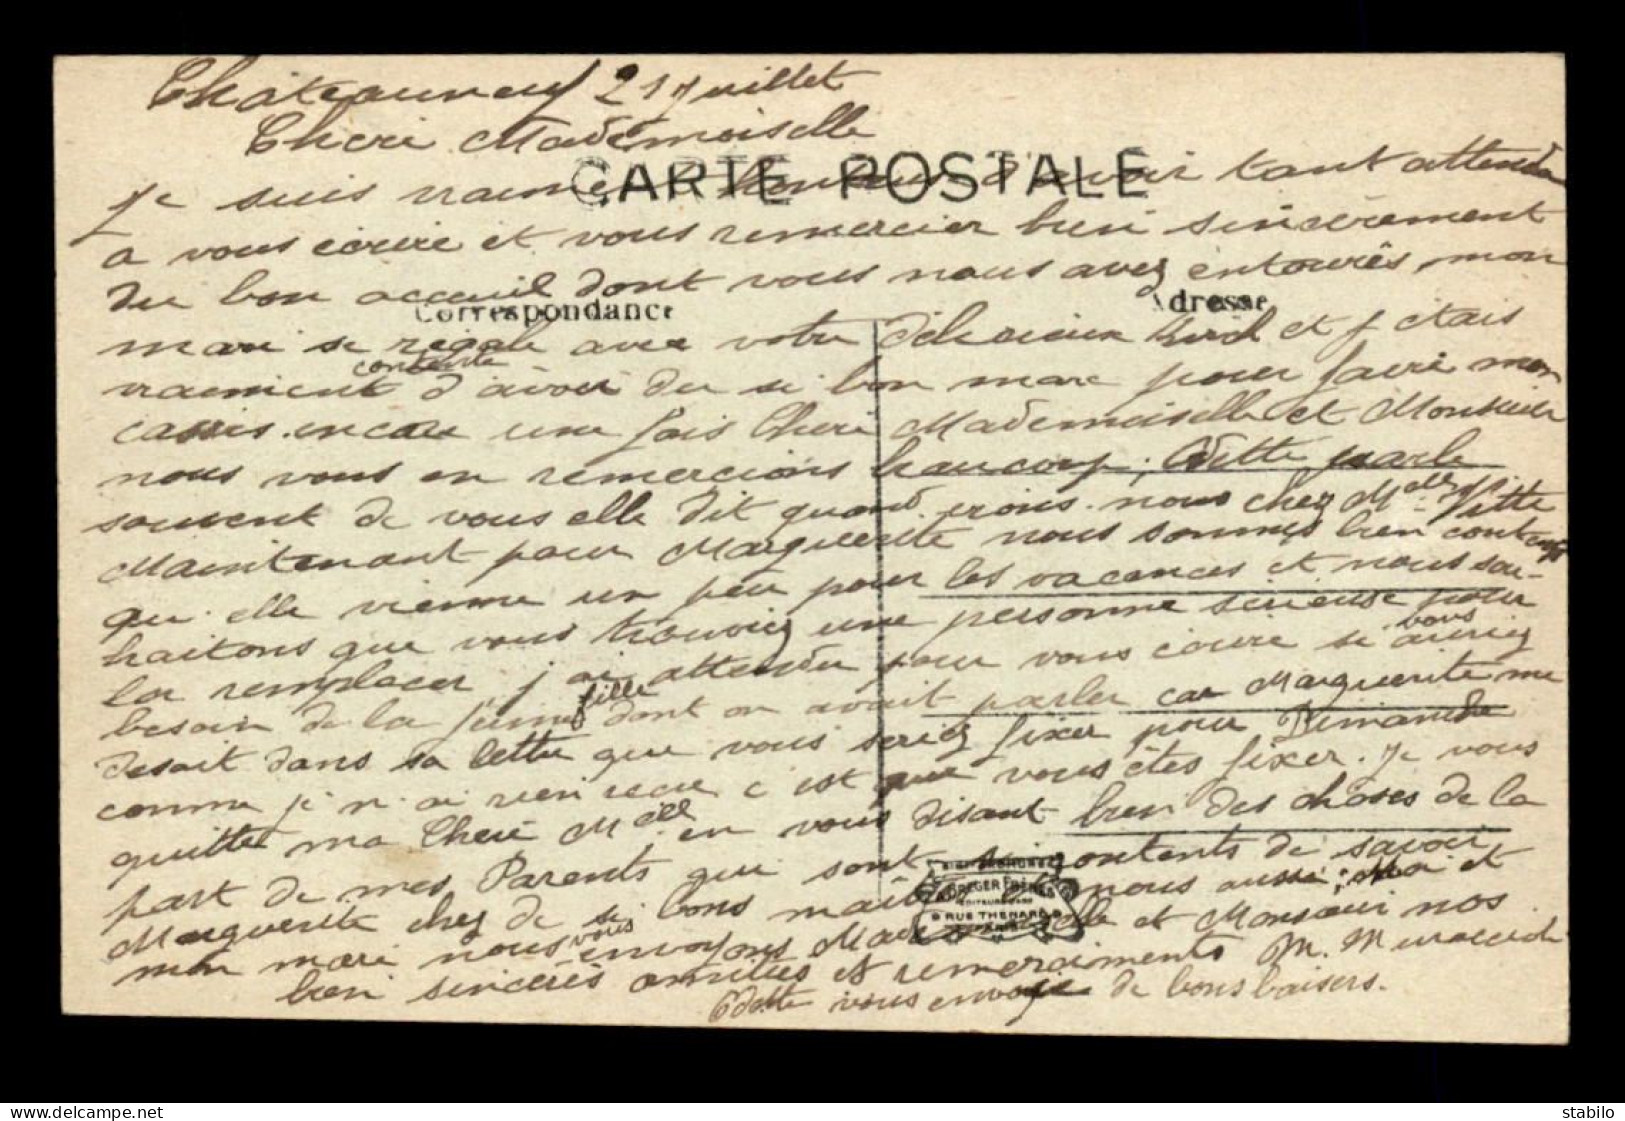 Châteauneuf 21 juillet
Cheri Mademoiselle
CARTE POSTALE
Je suis vraiment d avoir tant attendu
a vous ecrire et vous remercier bien sincèrement
du bon accueil dont vous nous avez entourés, mon
Correspondance
Adresse
mari se régale avec votre délicieux et j etais
vraiment contente d'avoir du si bon marc pour faire mon
cassis. encore une fois Cheri Mademoiselle et Monsieur
nous vous en remercions beaucoup; Odette parle
souvent de vous elle dit quand irons nous chez Mdlle Vitte
Maintenant pour Marguerite nous sommes bien contents
qu elle vienne un peu pour les vacances et nous sou-
haitons que vous trouviez une personne serieuse pour
la remplacer j ai attendu pour vous écrire si vous auriez
besoin de la jeune fille dont on avait parler car Marguerite me
desait dans sa lettre que vous seriez fixer pour Dimanche
comme je n ai rien recu c est que vous êtes fixer. Je vous
quitte ma Cheri Mdlle en vous disant bien des choses de la
part de mes Parents qui sont si contents de savoir
Marguerite chez de si bons maîtres et nous aussi; Moi et
mon mari nous vous envoyons Mademoiselle et Monsieur nos
bien sincères amitiés et remerciments M.
Odette vous envoye de bons baisers.
RUE THENARD
delcampe.net
stabilo